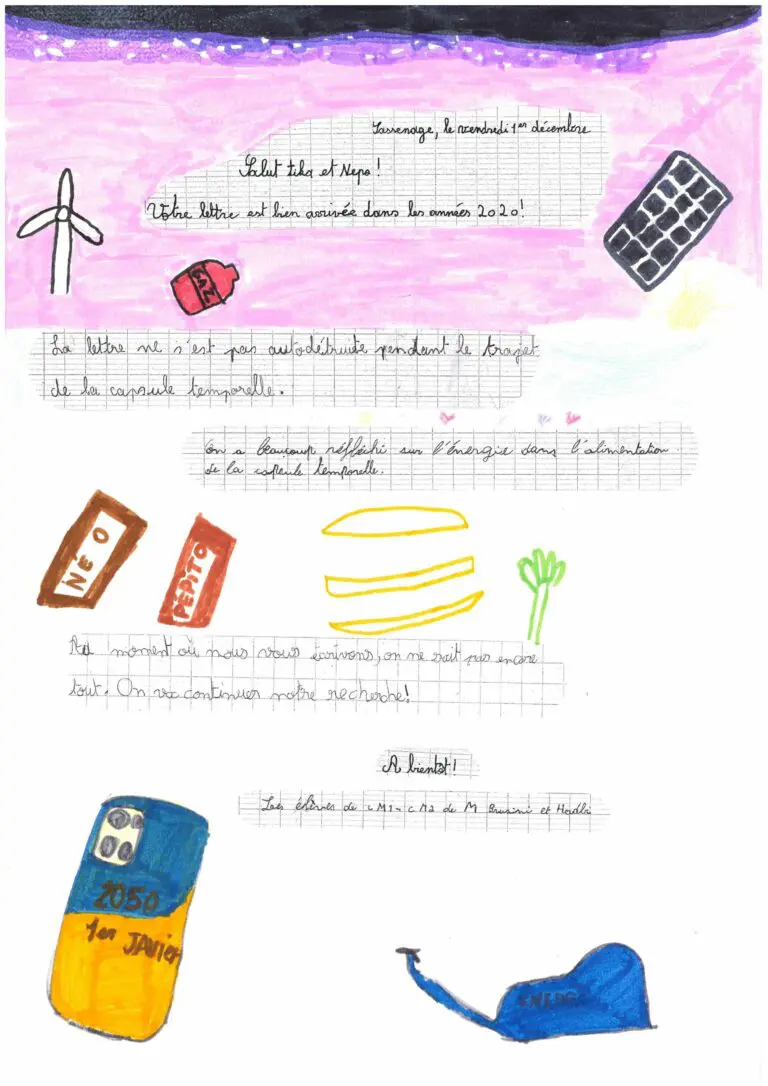 Sassenage, le vendredi 1er décembre
Salut Lika et Nepo !
Votre lettre est bien arrivée dans les années 2020!
GAZ
La lettre ne s'est pas autodétruite pendant le trajet
de la capsule temporelle.
On a beaucoup réfléchi sur l'énergie dans l'alimentation
de la capsule temporelle.
NÉO
PEPITO
Au moment où nous vous écrivons, on ne sait pas encore
tout. On va continuer notre recherche!
A bientôt !
Les élèves de CM1-CM2 de M et
2050
1er JAViEr
ENERG